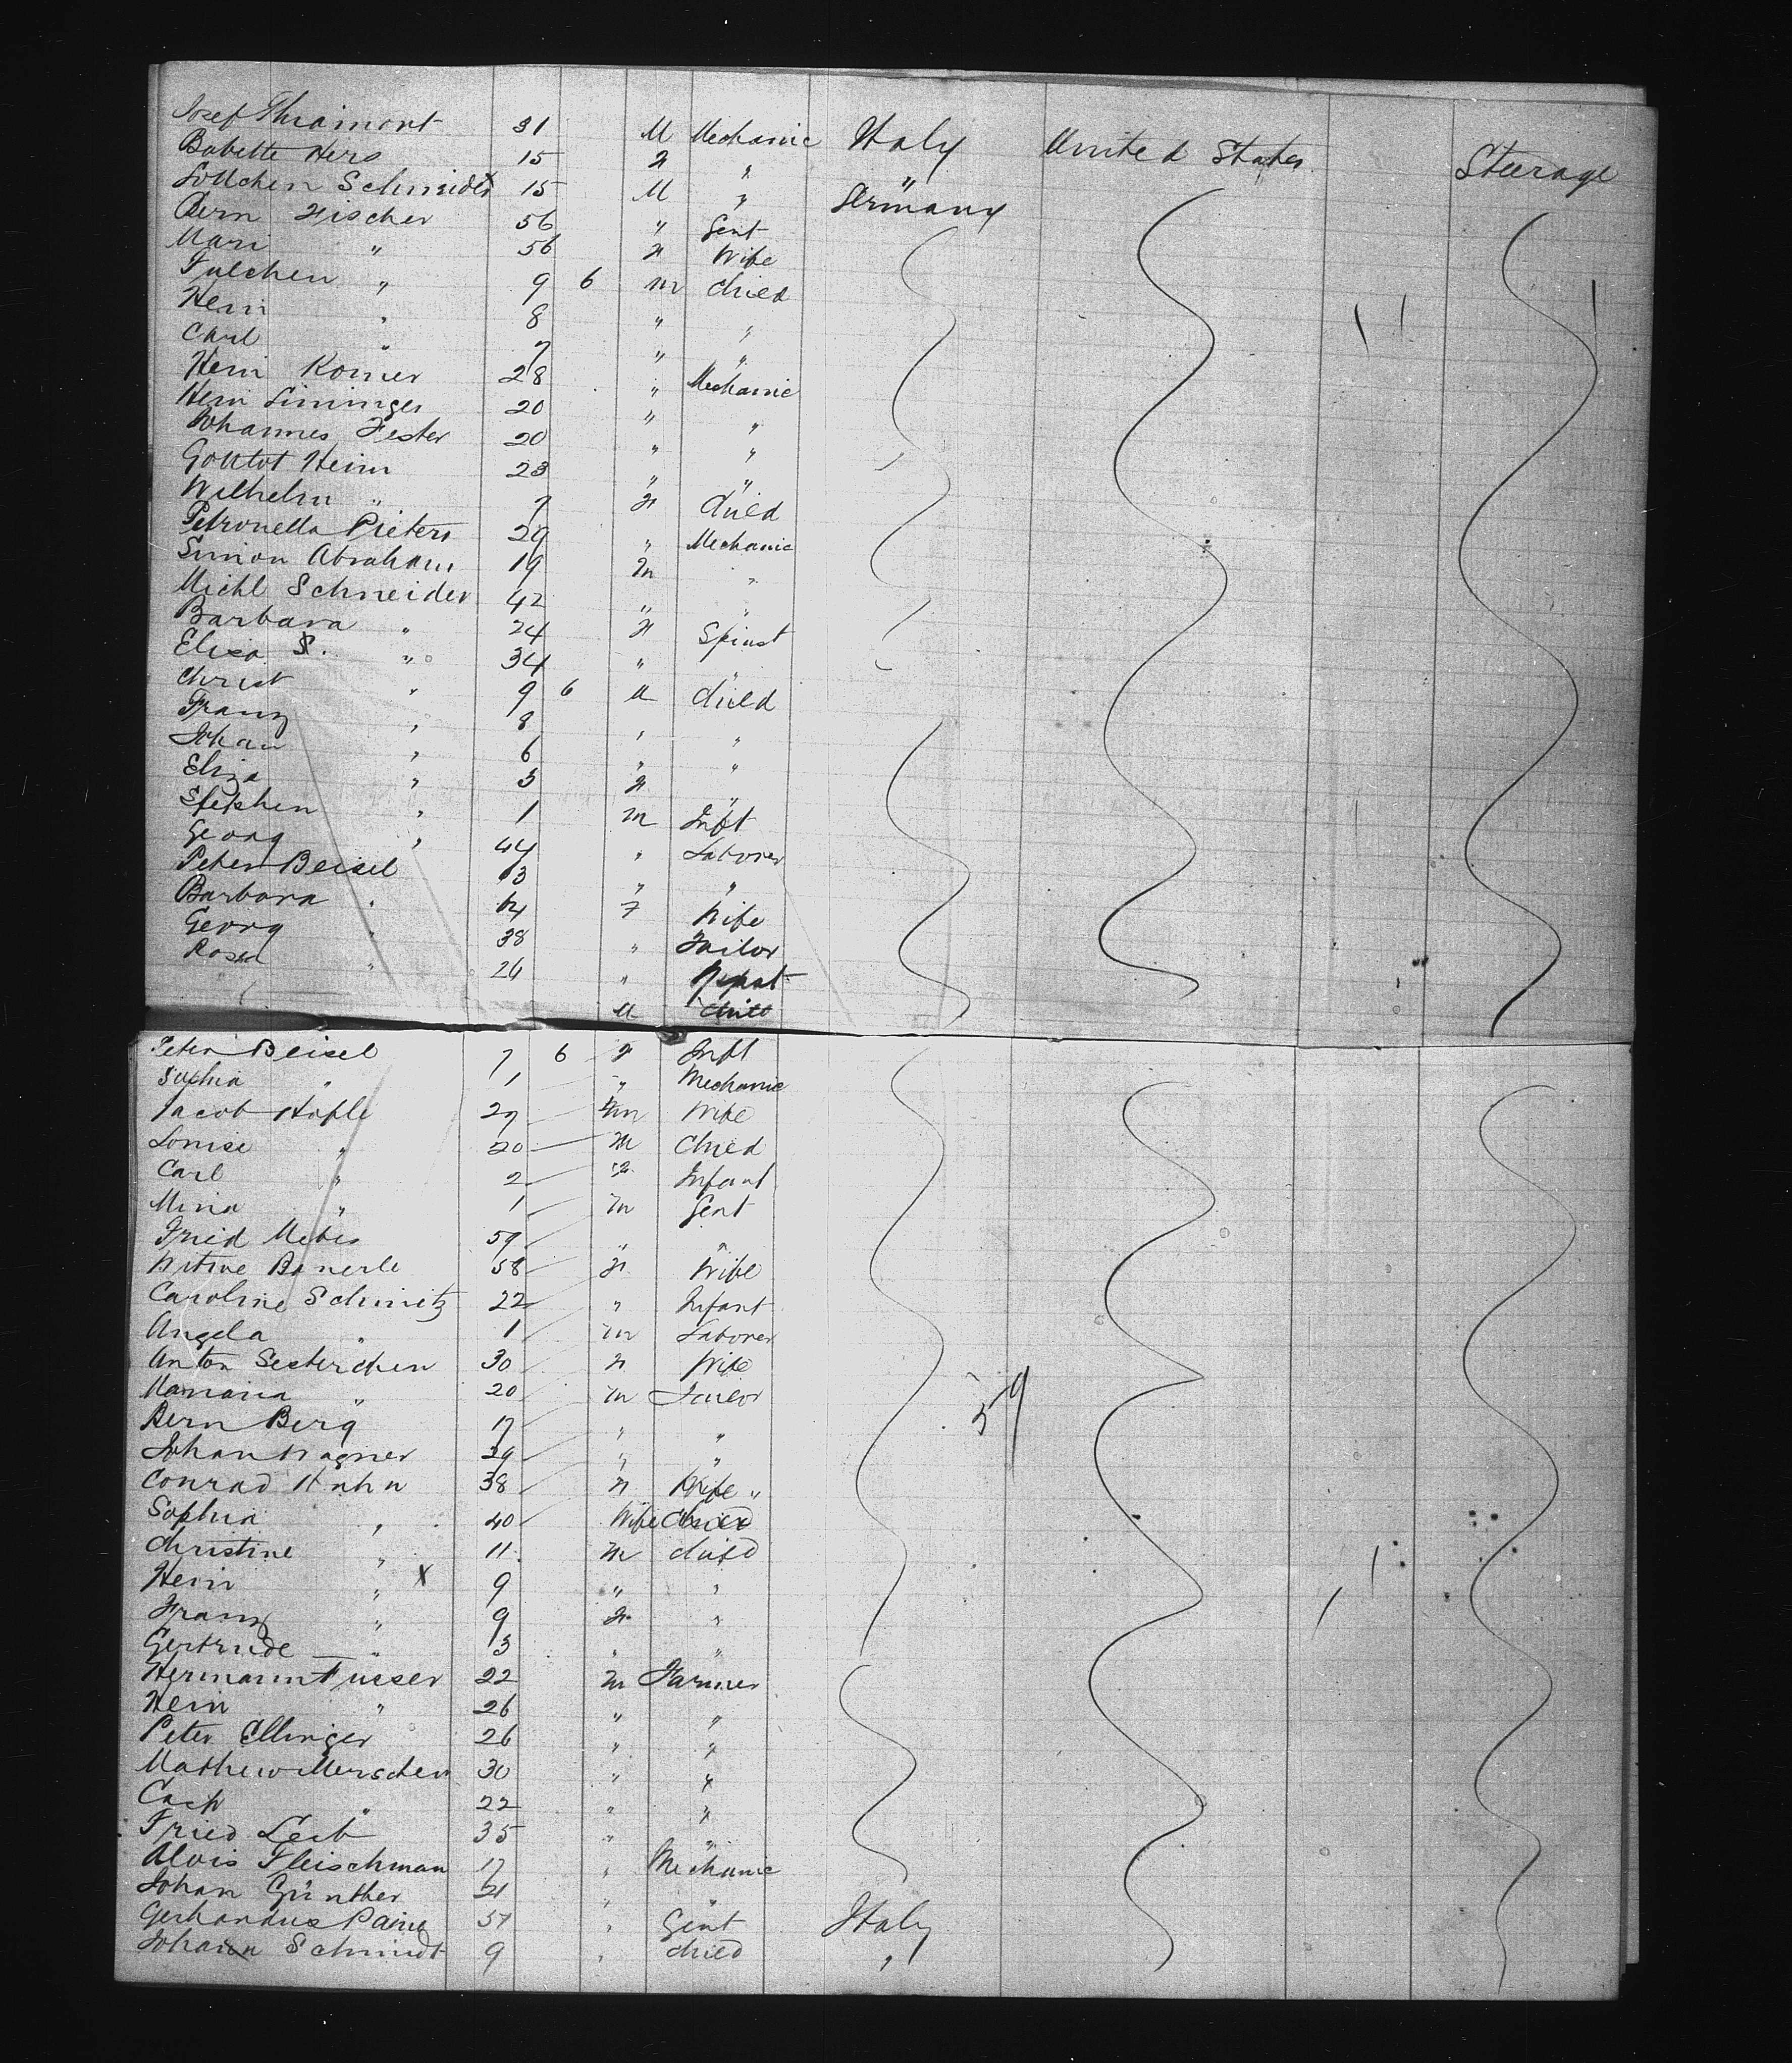 Josef Thramont 31 M Mechanic Italy United States Steerage
Babette Hers 15 F " "
Lottchen Schmidt 15 M " Germany
Bern Fischer 56 " Gent
Mari " 56 F Wife
Julchen " 9 6 m Child
Hein " 8 " "
Carl " 7 " "
Hein Komer 28 " Mechanic
Hein Lininger 20 " "
Johannes Fester 20 " "
Heim 23 " "
Wilhelm " 7 F Child
Petronella Pieters 29 " Mechanic
Simon Abraham 19 m "
Michl Schneider 42 " "
Barbara " 24 F Spinst
Elisa S. " 34 " "
Christ " 9 6 M Child
Franz " 8 " "
Johan " 6 " "
Eliza " 3 F "
Stephen " 1 m Inft
Georg " 44 " Laborer
Peter Beisel 63 " "
Barbara " 64 F Wife
Georg " 38 " Tailor
Rosa " 26 "
M Child
Peter Beisel 7 6 F Inft
Sophia " 1 " Mechanic
Jacob Hofle 27 m Wife
Louise " 20 M Child
Carl " 2 F Infant
Mina " 1 m Gent
Fried Mebes 59 " "
Banerle 58 F Wife
Caroline Schmitz 22 " Infant
Angela " 1 m Laborer
Anton Sesterchen 30 F Wife
Mariana " 20 m Tailor 59
Bern Berg 17 " "
Johan Wagner 39 " "
Conrad Hahn 38 F Wife "
Sophia " 40 Wife Child
Christine " 11 m Child
Hein " X 9 " "
Franz " 9 F "
Gertrude " 3 " "
Hermann Fusser 22 m Farmer
Hein " 26 " "
Peter Ellinger 26 " "
Mathew Merschen 30 " "
Casp " 22 " "
Fried Leib 35 " "
Alois Fleischman 17 " Mechanic
Johan Günther 21 " "
Gerhardus Paine 37 " Gent Italy
Johann Schmidt 9 " Child "